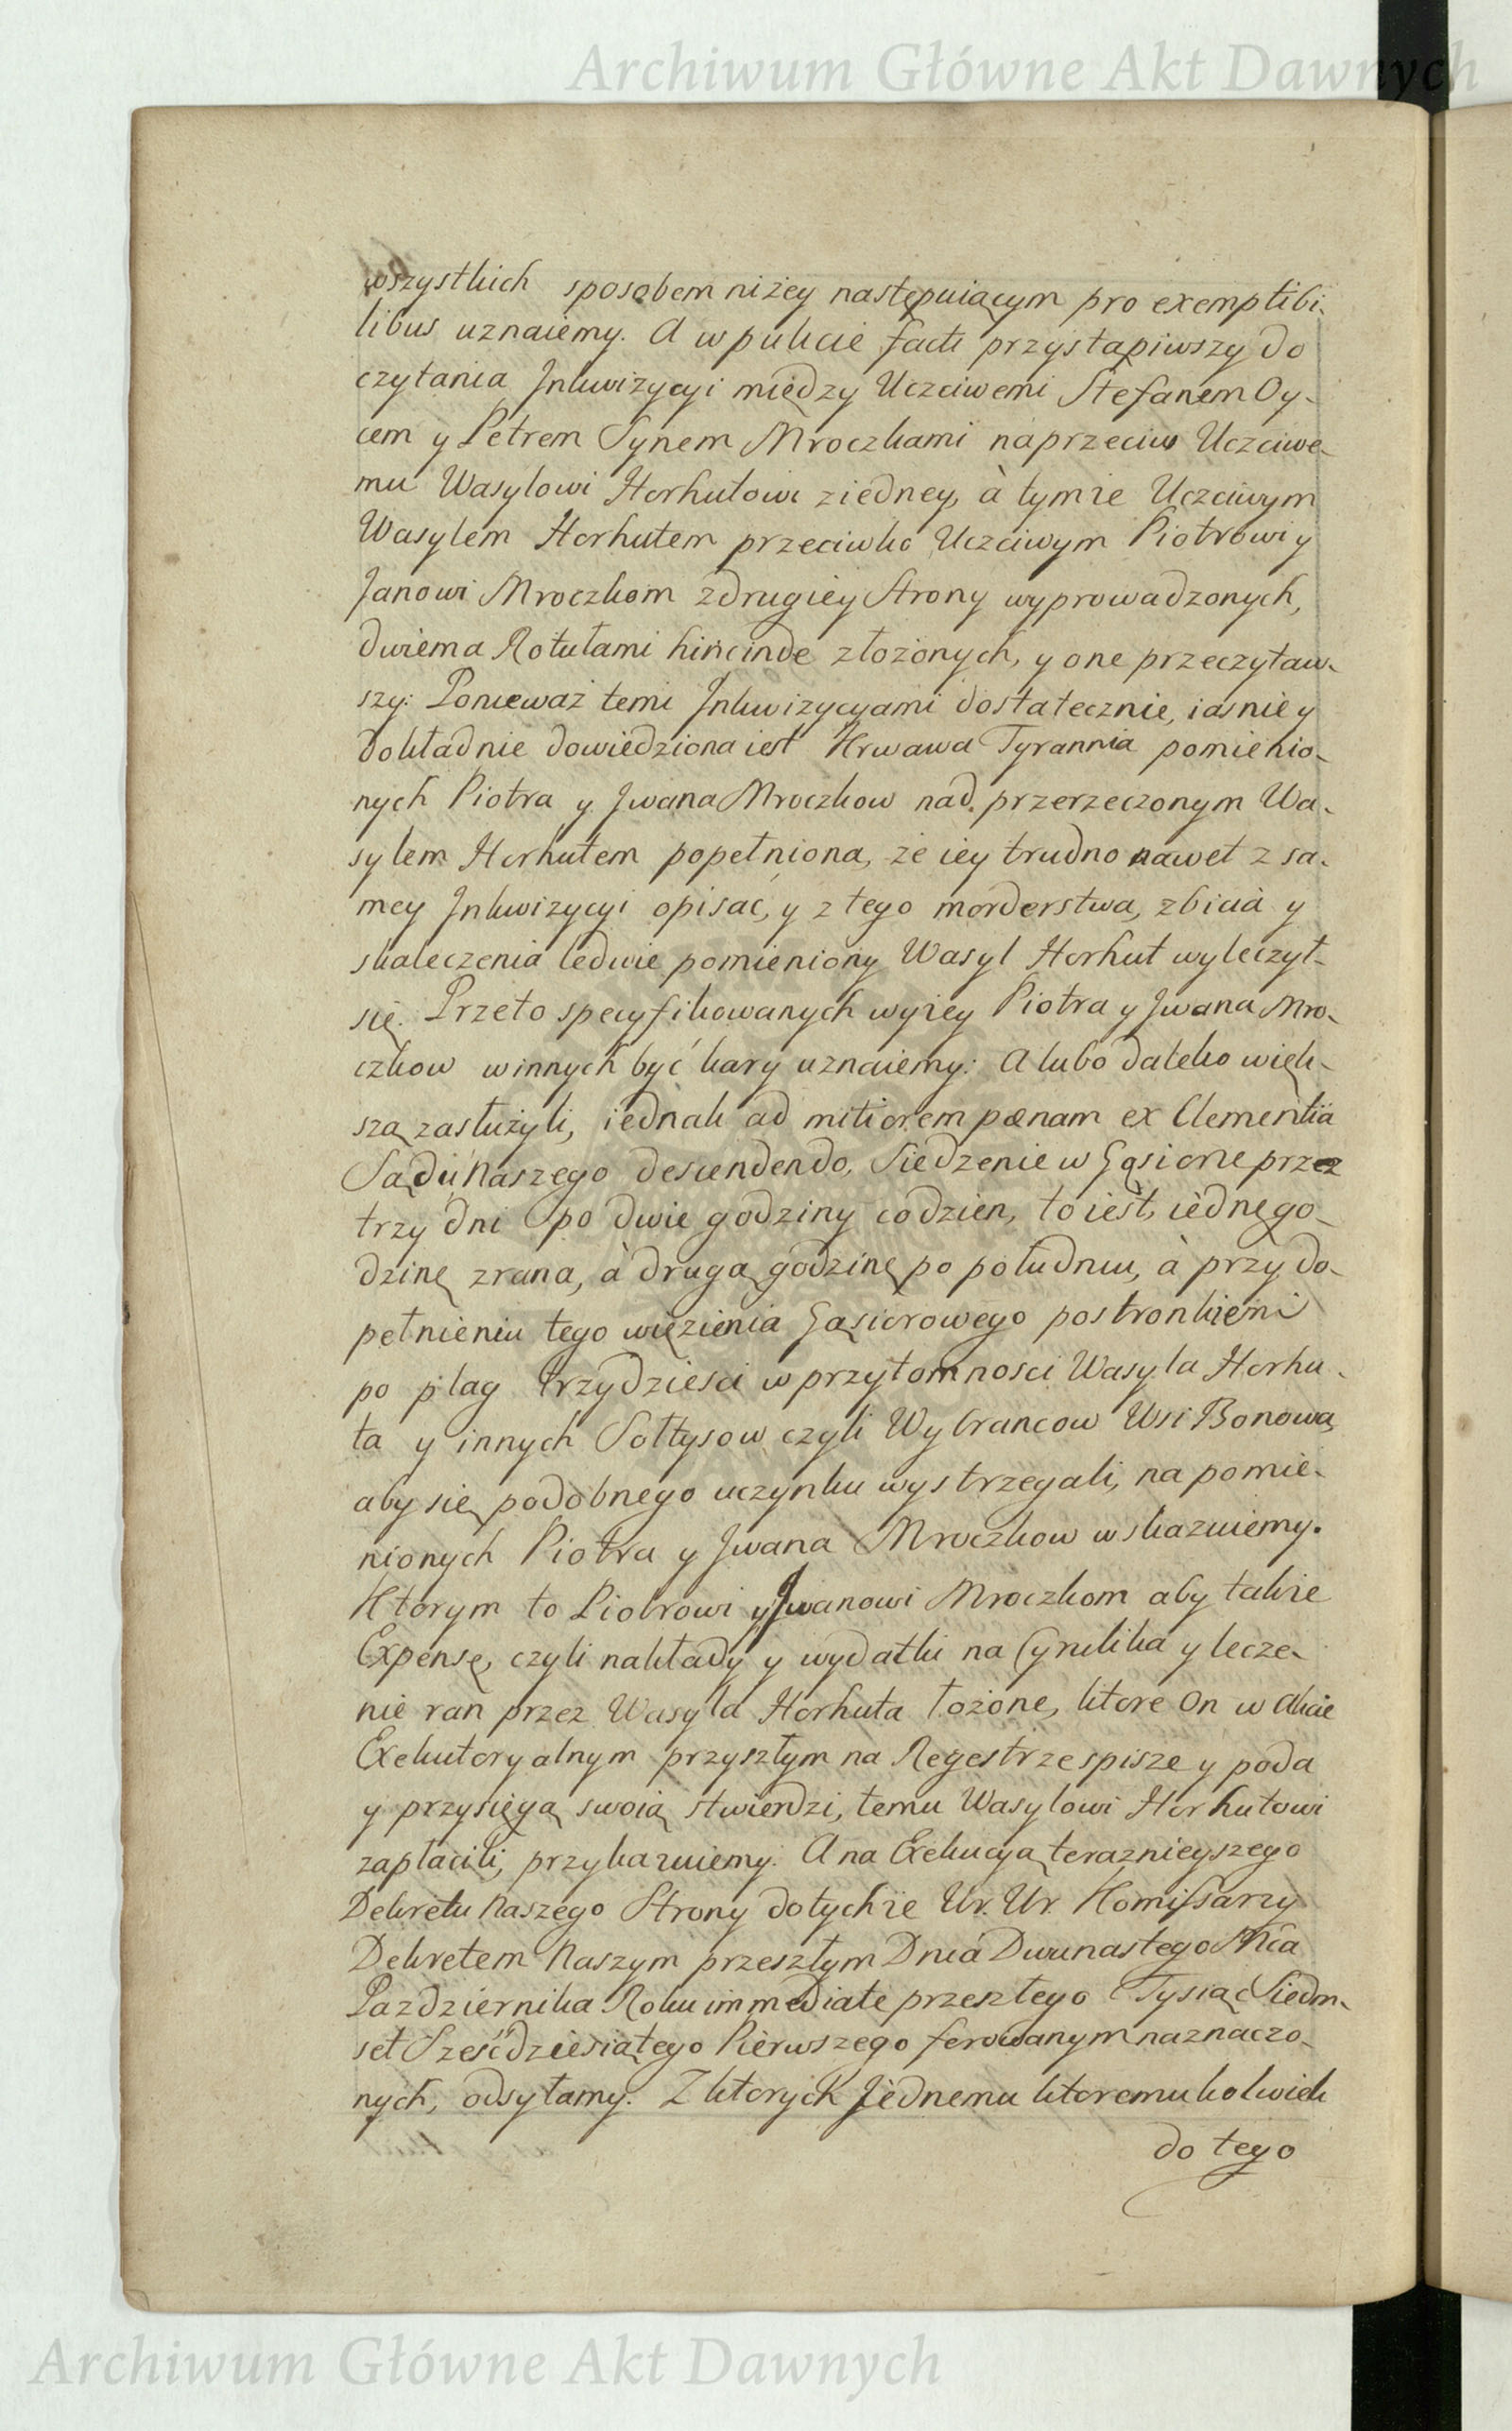 Archiwum Główne Akt Dawnych
wszystkich sposobem niżey następuiącym pro exemptibi-
libus uznaiemy. A w pukcie facti przystąpiwszy do
czytania Inkwizycyi między Uczciwemi Stefanem Oy-
cem y Petrem Synem Mroczkami naprzeciw Uczciwe-
mu Wasylowi Horhutowi z iedney, à tymże Uczciwym
Wasylem Horhutem przeciwko Uczciwym Piotrowi y
Janowi Mroczkom z drugiey Strony wyprowadzonych,
dwiema Rotułami hincinde złożonych, y one przeczytaw-
szy: Ponieważ temi Inkwizycyami dostatecznie, iasnie y
dokładnie dowiedziona iest Krwawa Tyrannia pomienio-
nych Piotra y Iwana Mroczkow nad przerzeczonym Wa-
sylem Horhutem popełniona, że iey trudno nawet z sa-
mey Inkwizycyi opisać, y z tego morderstwa, zbicia y
skaleczenia ledwie pomieniony Wasyl Horhut wyleczył
się. Przeto specyfikowanych wyżey Piotra y Iwana Mro-
czkow winnych być kary uznaiemy: A lubo daleko więk-
szą zasłużyli, iednak ad mitiorem pœnam ex Clementia
Sądu Naszego descendendo, Siedzenie w Gąsiorze przez
trzy dni po dwie godziny codzien, to iest, iednę go-
dzinę zrana, à drugą godzinę po południu, à przy do-
pełnieniu tego więzienia Gąsiorowego postronkiemi
po plag trzydziesci w przytomnosci Wasyla Horhu-
ta y innych Sołtysow czyli Wybrancow Wsi Bonowa,
aby się podobnego uczynku wystrzegali, na pomie-
nionych Piotra y Iwana Mroczkow wskazuiemy.
Ktorym to Piotrowi y Iwanowi Mroczkom aby także
Expensę, czyli nakłady y wydatki na Cyrulika y lecze-
nie ran przez Wasyla Horhuta łożone, ktore On w Akcie
Exekutoryalnym przyszłym na Regestrze spisze y poda
y przysięgą swoią stwierdzi, temu Wasylowi Horhutowi
zapłacili, przykazuiemy. A na Exekucyą teraznieyszego
Dekretu Naszego Strony do tychże Ur. Ur. Komissarzy
Dekretem Naszym przeszłym Dnia Dwunastego Mca
Pazdziernika Roku immediate przeszłego Tysiąc Siedm-
set Sześćdziesiątego Pierwszego ferowanym naznaczo-
nych, odsyłamy. Z ktorych Jednemu ktoremukolwiek
do tego
Archiwum Główne Akt Dawnych